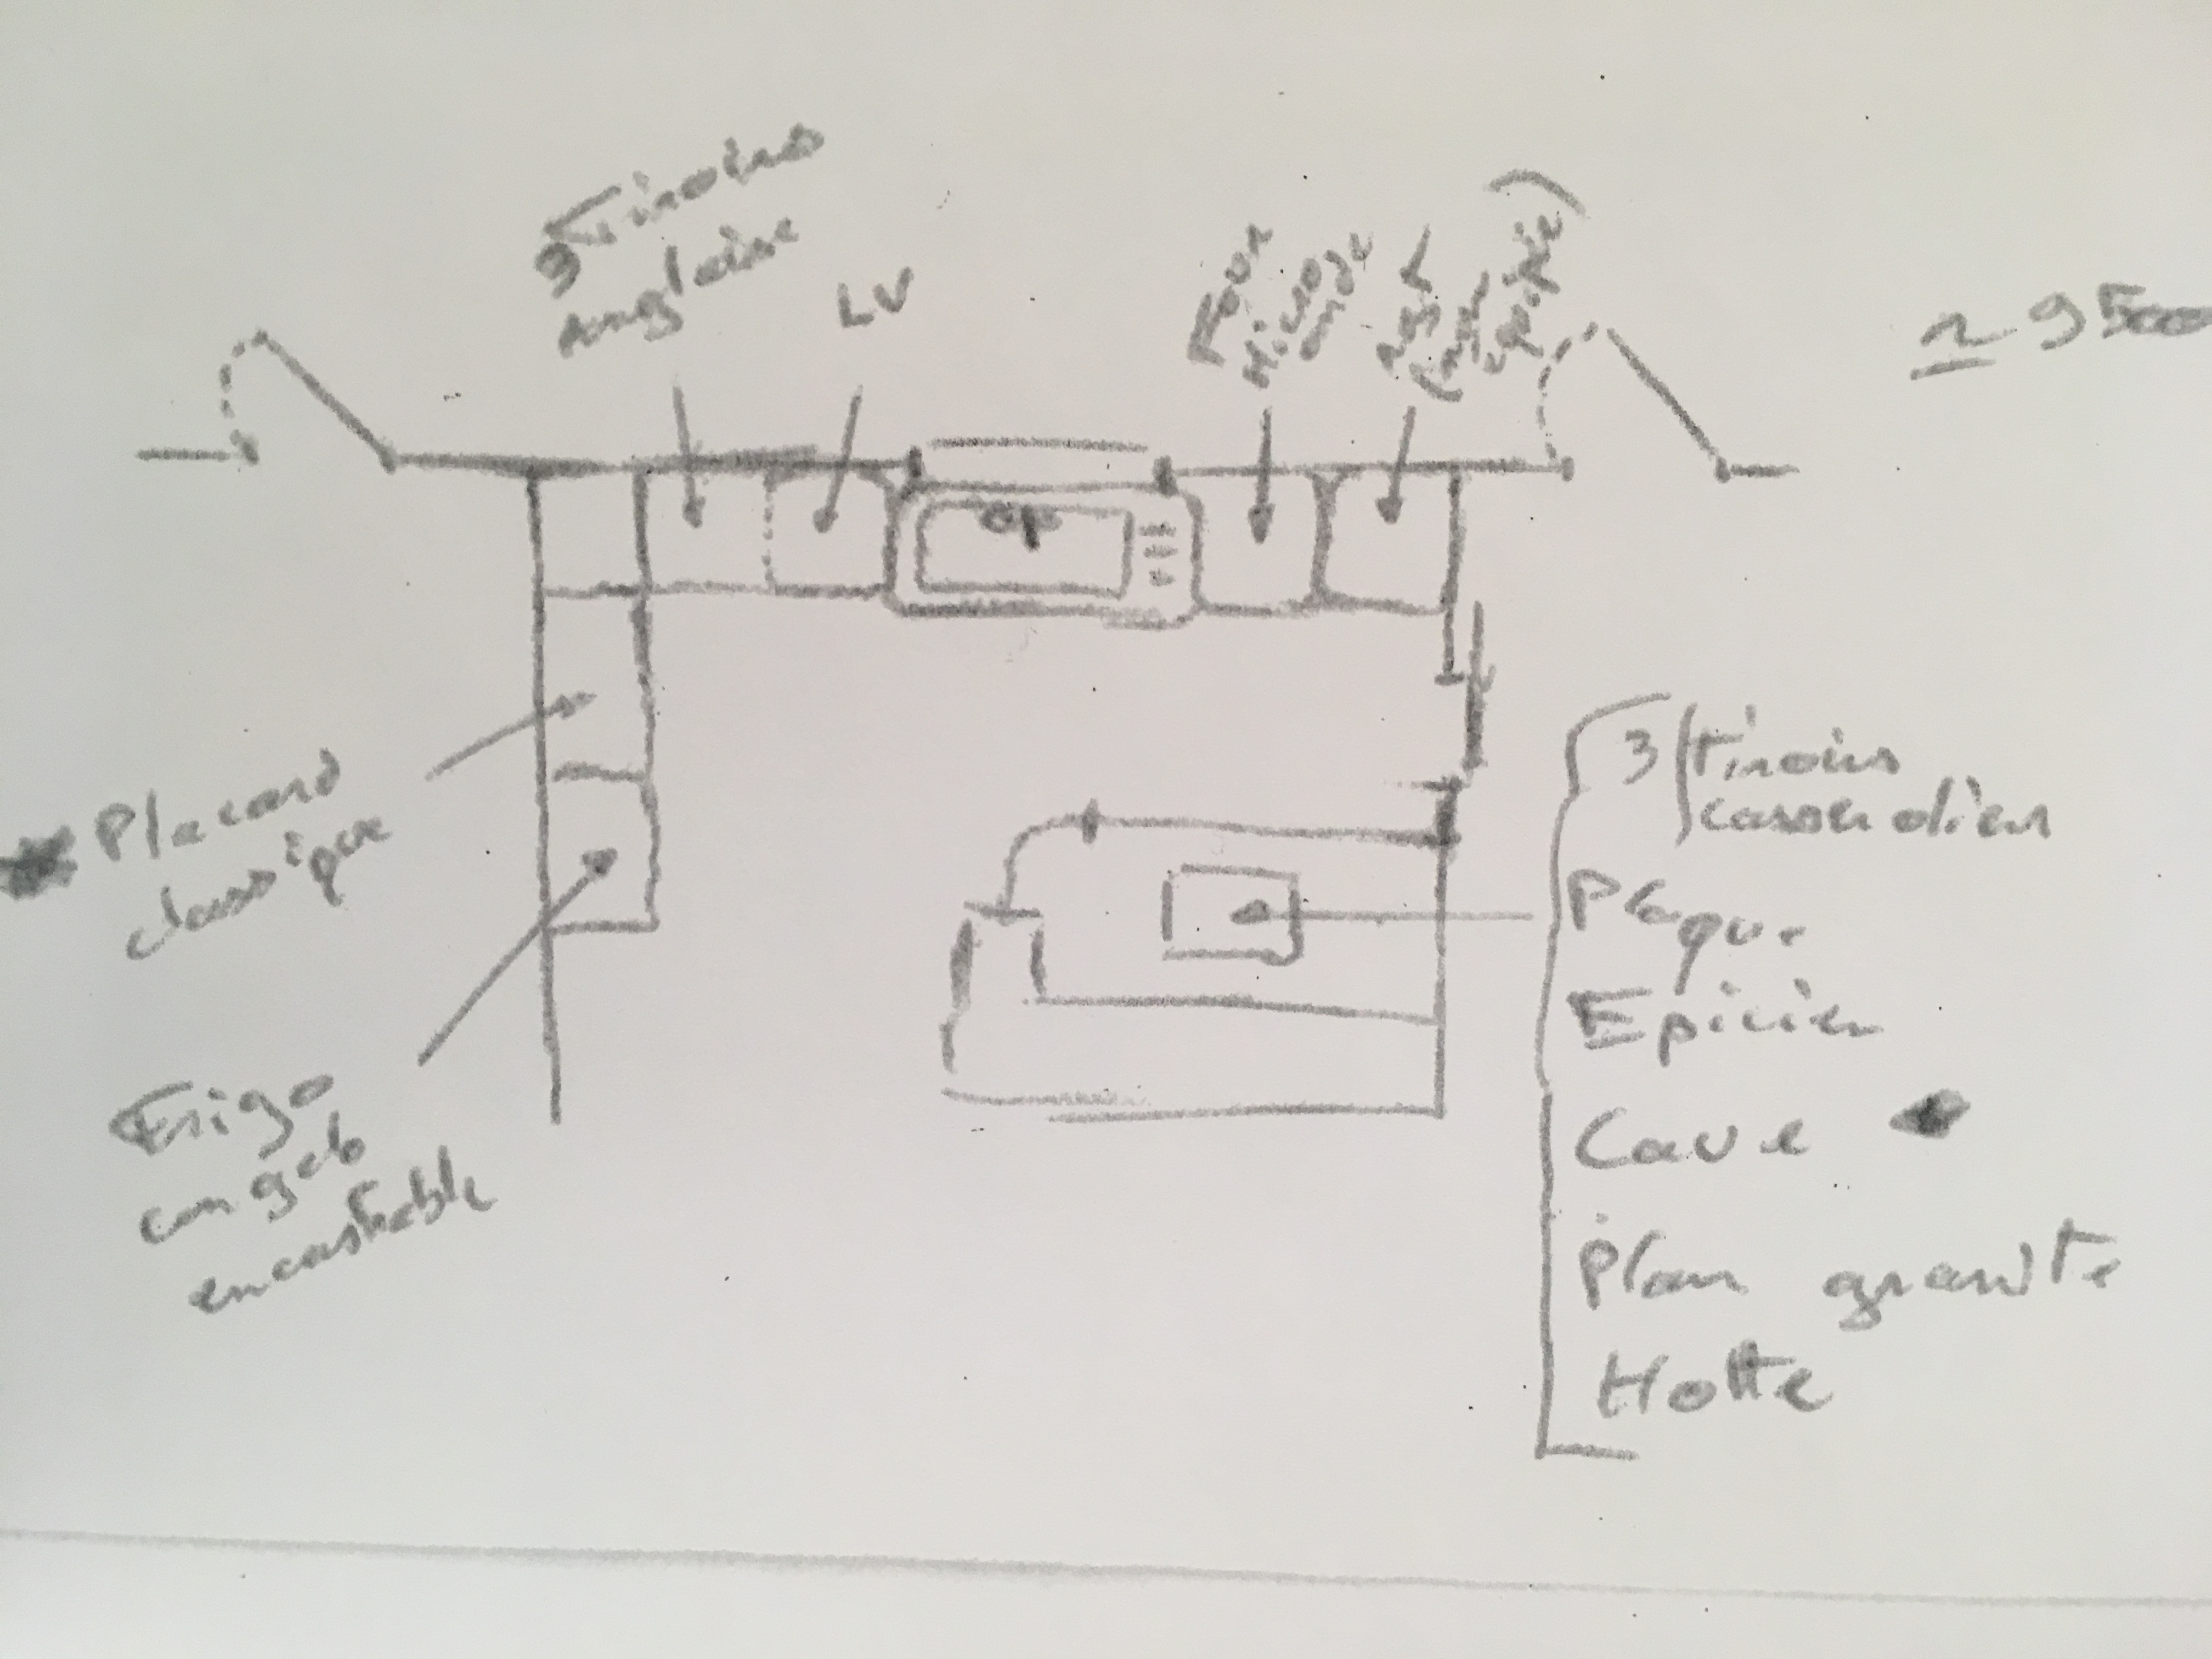 3 Tiroirs
Anglaise
LV
Four
Micro
onde
≈ 9500
Placard
classique
Frigo
congelo
encastrable
3 tiroirs
casserolier
Plaque
Epicier
Cave
Plan granite
Hotte